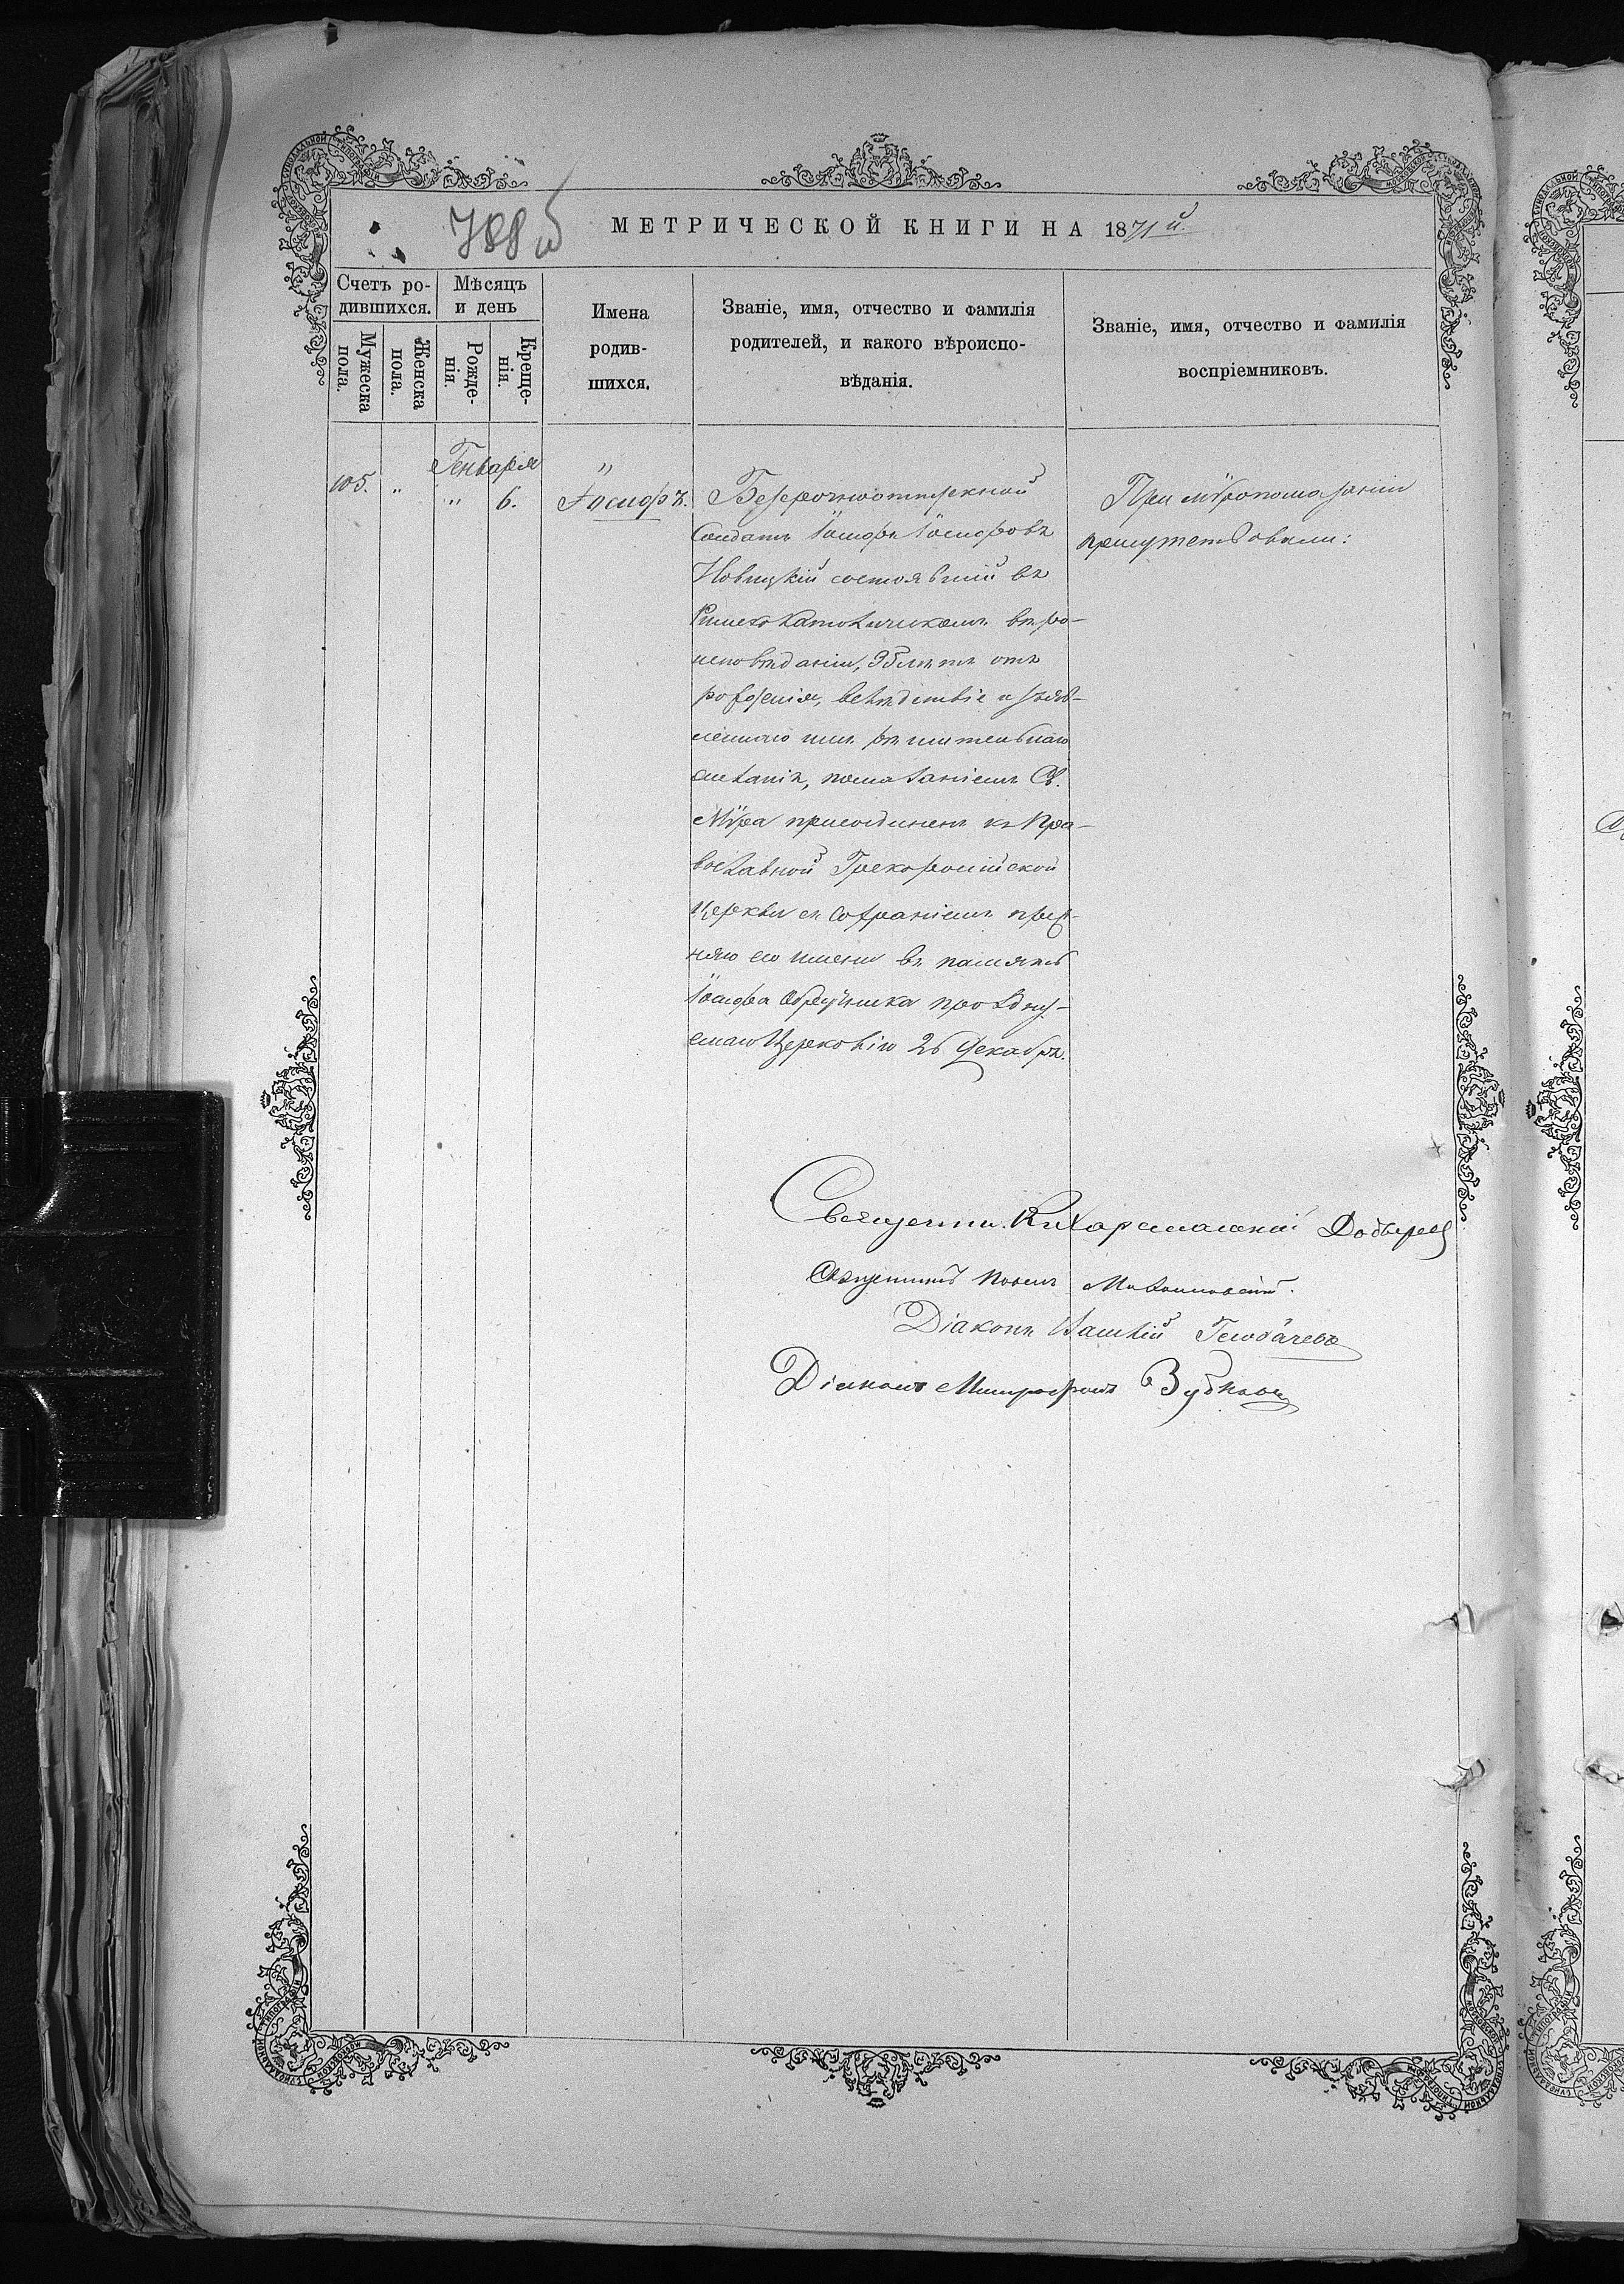 788 об
МЕТРИЧЕСКОЙ КНИГИ НА 1871й.
Счетъ ро-
дившихся.
Мѣсяцъ
и день
Мужеска
пола.
Женска
пола.
Рожде-
нія.
Креще-
нія.
Имена
родив-
шихся.
Званіе, имя, отчество и фамилія
родителей, и какого вѣроиспо-
вѣданія.
Званіе, имя, отчество и фамилія
воспріемниковъ.
Генваря
105. " " 6.
"
Іосифъ.
Безсрочноотпускной
Солдатъ Іосифъ Іосифовъ
Новицкій состоявший въ
Римскокатолическомъ вѣро-
исповѣданіи, 35 лѣтъ отъ
рожденія, вслѣдствіе изъяв-
леннаго имъ рѣшительнаго
желанія, помазаніемъ Св.
Мѵра присоединенъ къ Пра-
вославной Грекороссійской
Церкви съ сохраніемъ преж-
няго его имени въ память
Іосифа Обручника праздну-
емаго Церковію 26 Декабря.
При мѵропомазаніи
присутствовали:
Священн.
Священникъ Павелъ
Діаконъ Василій
Діаконъ Митрофанъ Зубковъ